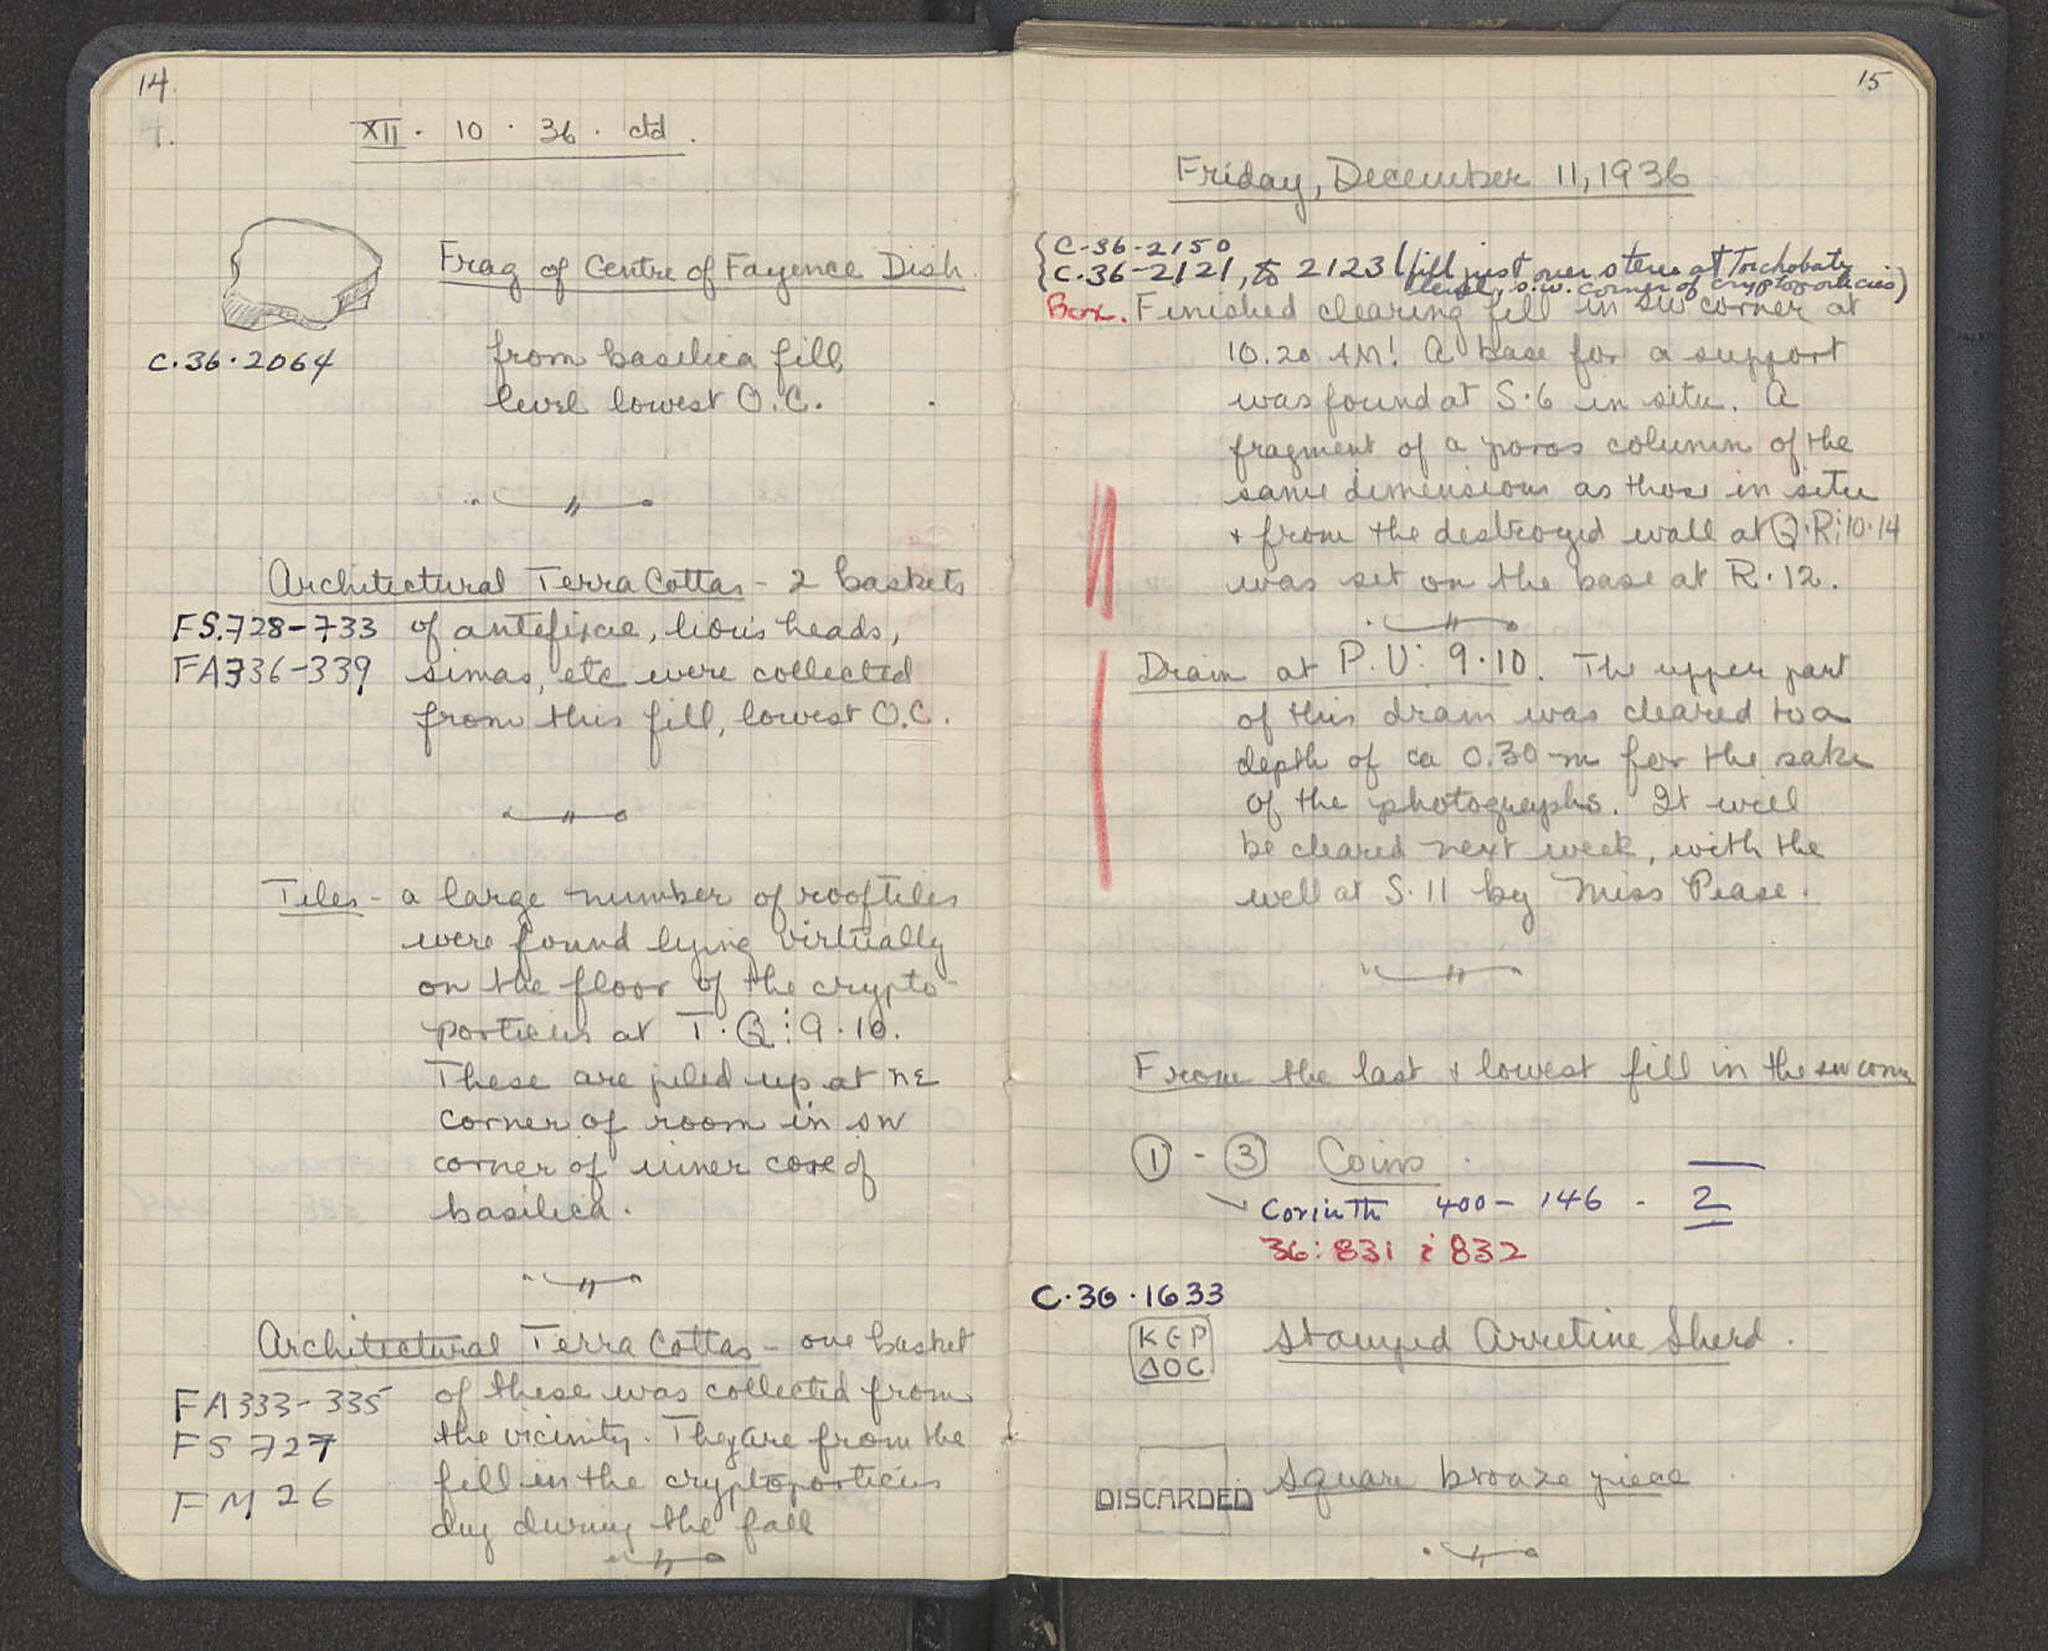 14
XII · 10 · 36 · ctd.
Frag of Centre of Fayence Dish.
C.36.2064
from basilica fill,
level lowest O.C.
Architectural Terra Cottas - 2 baskets
FS.728-733 of antefixae, lion's heads,
FA336-339 simas, etc were collected
from this fill, lowest O.C.
Tiles - a large number of rooftiles
were found lying virtually
on the floor of the crypto-
porticus at T·Q:9·10.
These are piled up at NE
corner of room in SW
corner of inner core of
basilica.
Architectural Terra Cottas - one basket
FA333-335 of these was collected from
FS 727 the vicinity. They are from the
FM 26 fill in the cryptoporticus
dug during the fall
15
Friday, December 11, 1936
{C-36-2150
{C.36-2121, to 2123 (fill just over stereo at Toichobate
level, s.w. corner of cryptoporticus)
Box. Finished clearing fill in SW corner at
10.20 AM! A base for a support
was found at S·6 in situ. A
fragment of a poros column of the
same dimensions as those in situ
+ from the destroyed wall at Q·R:10·14
was set on the base at R·12.
Drain at P.U: 9·10. The upper part
of this drain was cleared to a
depth of ca 0.30 m for the sake
of the photographs. It will
be cleared next week, with the
well at S·11 by Miss Pease.
From the last + lowest fill in the SW corner
① - ③ Coins.
Corinth 400 - 146 - 2
36:831 & 832
C·36·1633
KEP
ΔOC
Stamped Arretine Sherd.
DISCARDED Square bronze piece